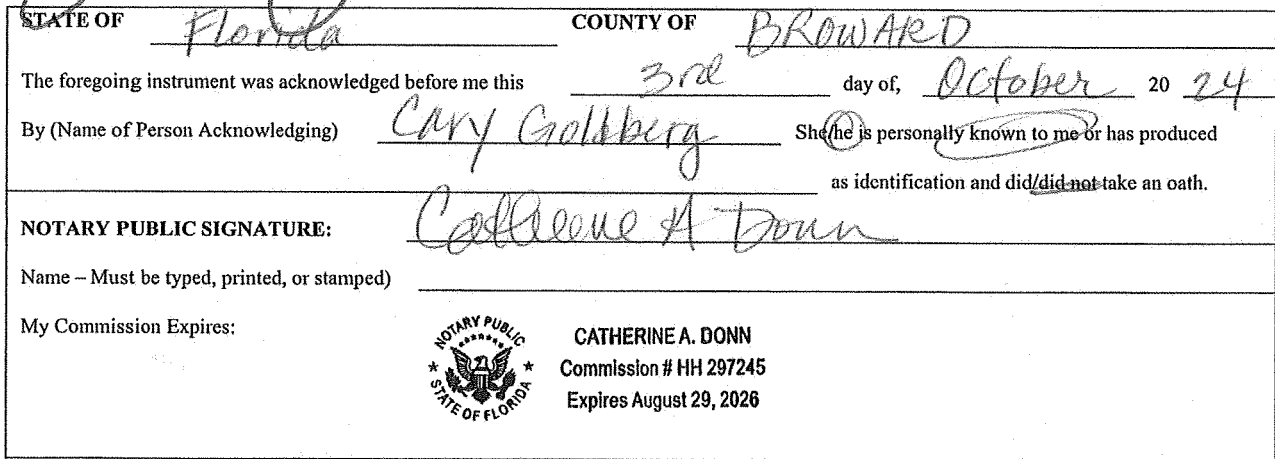 STATE OF Florida COUNTY OF BROWARD
The foregoing instrument was acknowledged before me this 3rd day of, October 20 24
By (Name of Person Acknowledging) Cary Goldberg She/he is personally known to me or has produced
as identification and did/did not take an oath.
NOTARY PUBLIC SIGNATURE: Catherine A Donn
Name – Must be typed, printed, or stamped)
My Commission Expires:
NOTARY PUBLIC
STATE OF FLORIDA
CATHERINE A. DONN
Commission # HH 297245
Expires August 29, 2026